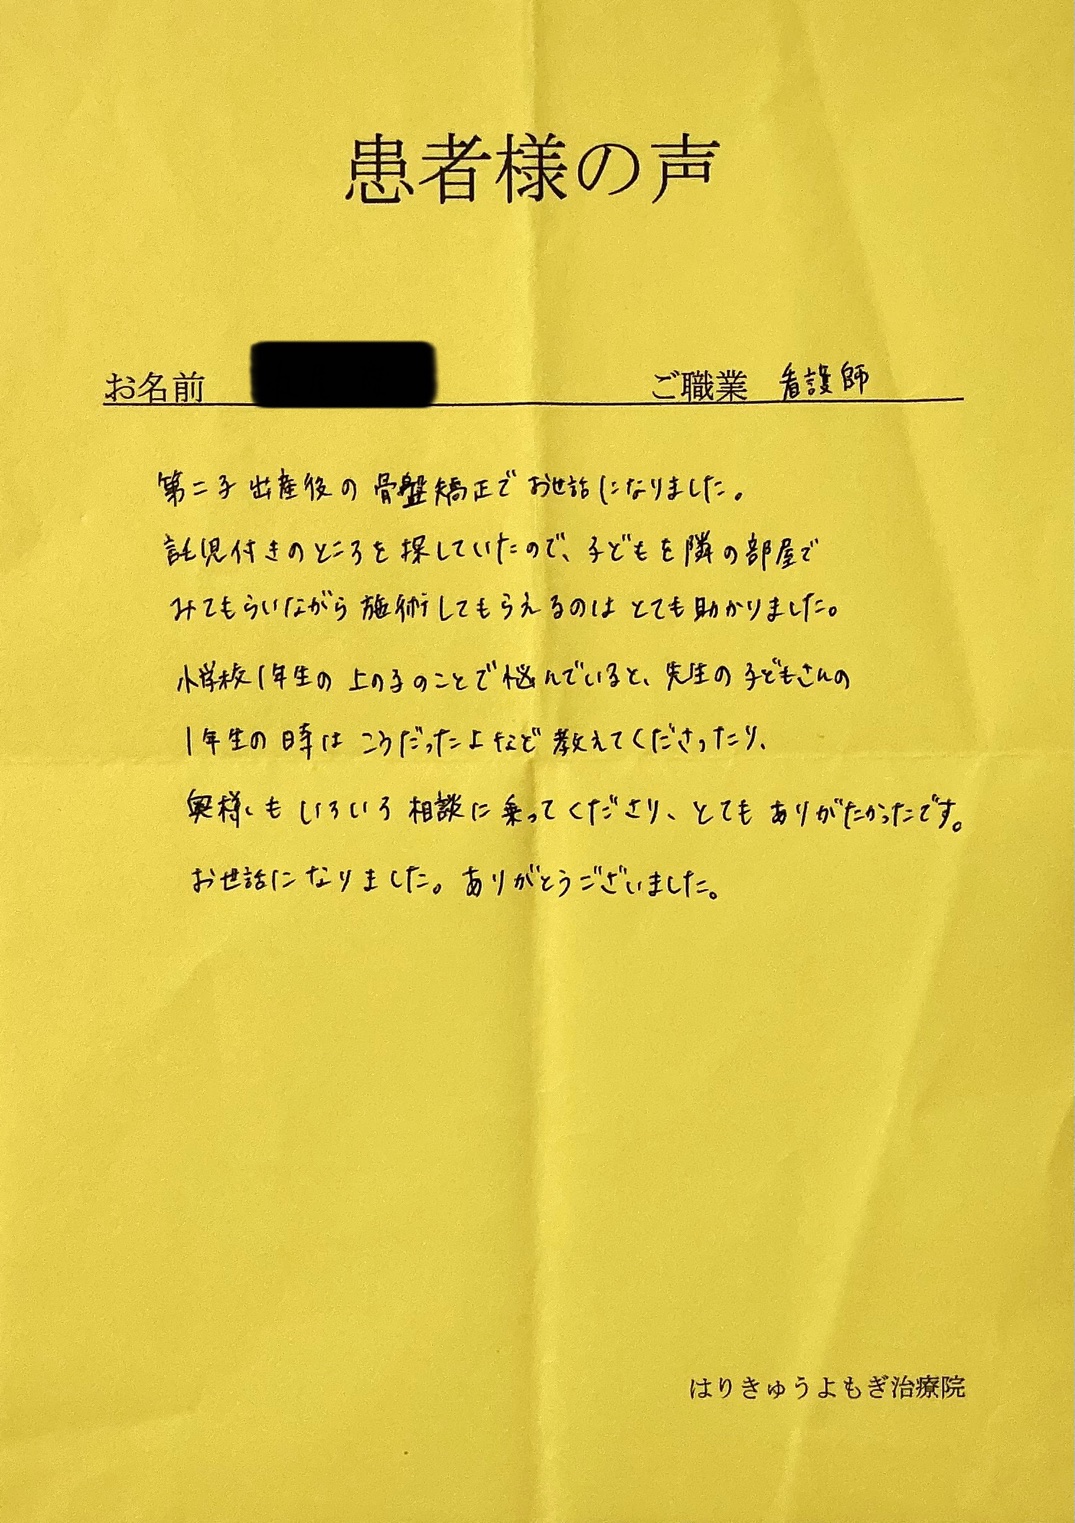 患者様の声
お名前 ご職業 看護師
第二子出産後の骨盤矯正でお世話になりました。
託児付きのところを探していたので、子どもを隣の部屋で
みてもらいながら施術してもらえるのはとても助かりました。
小学校1年生の上の子のことで悩んでいると、先生の子どもさんの
1年生の時はこうだったよなど教えてくださったり、
奥様もいろいろ相談に乗ってくださり、とてもありがたかったです。
お世話になりました。ありがとうございました。
はりきゅうよもぎ治療院